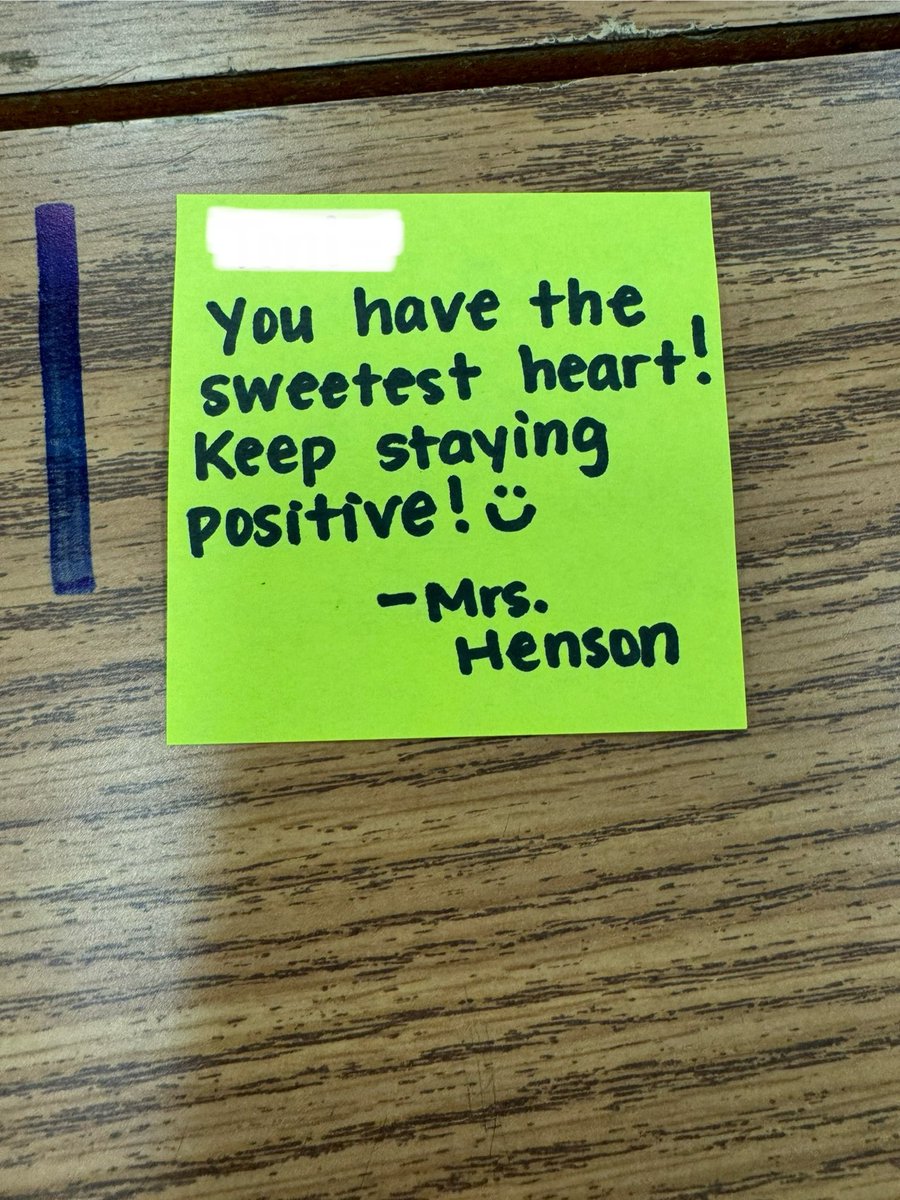 You have the
sweetest heart!
Keep staying
positive! :)
-Mrs.
Henson